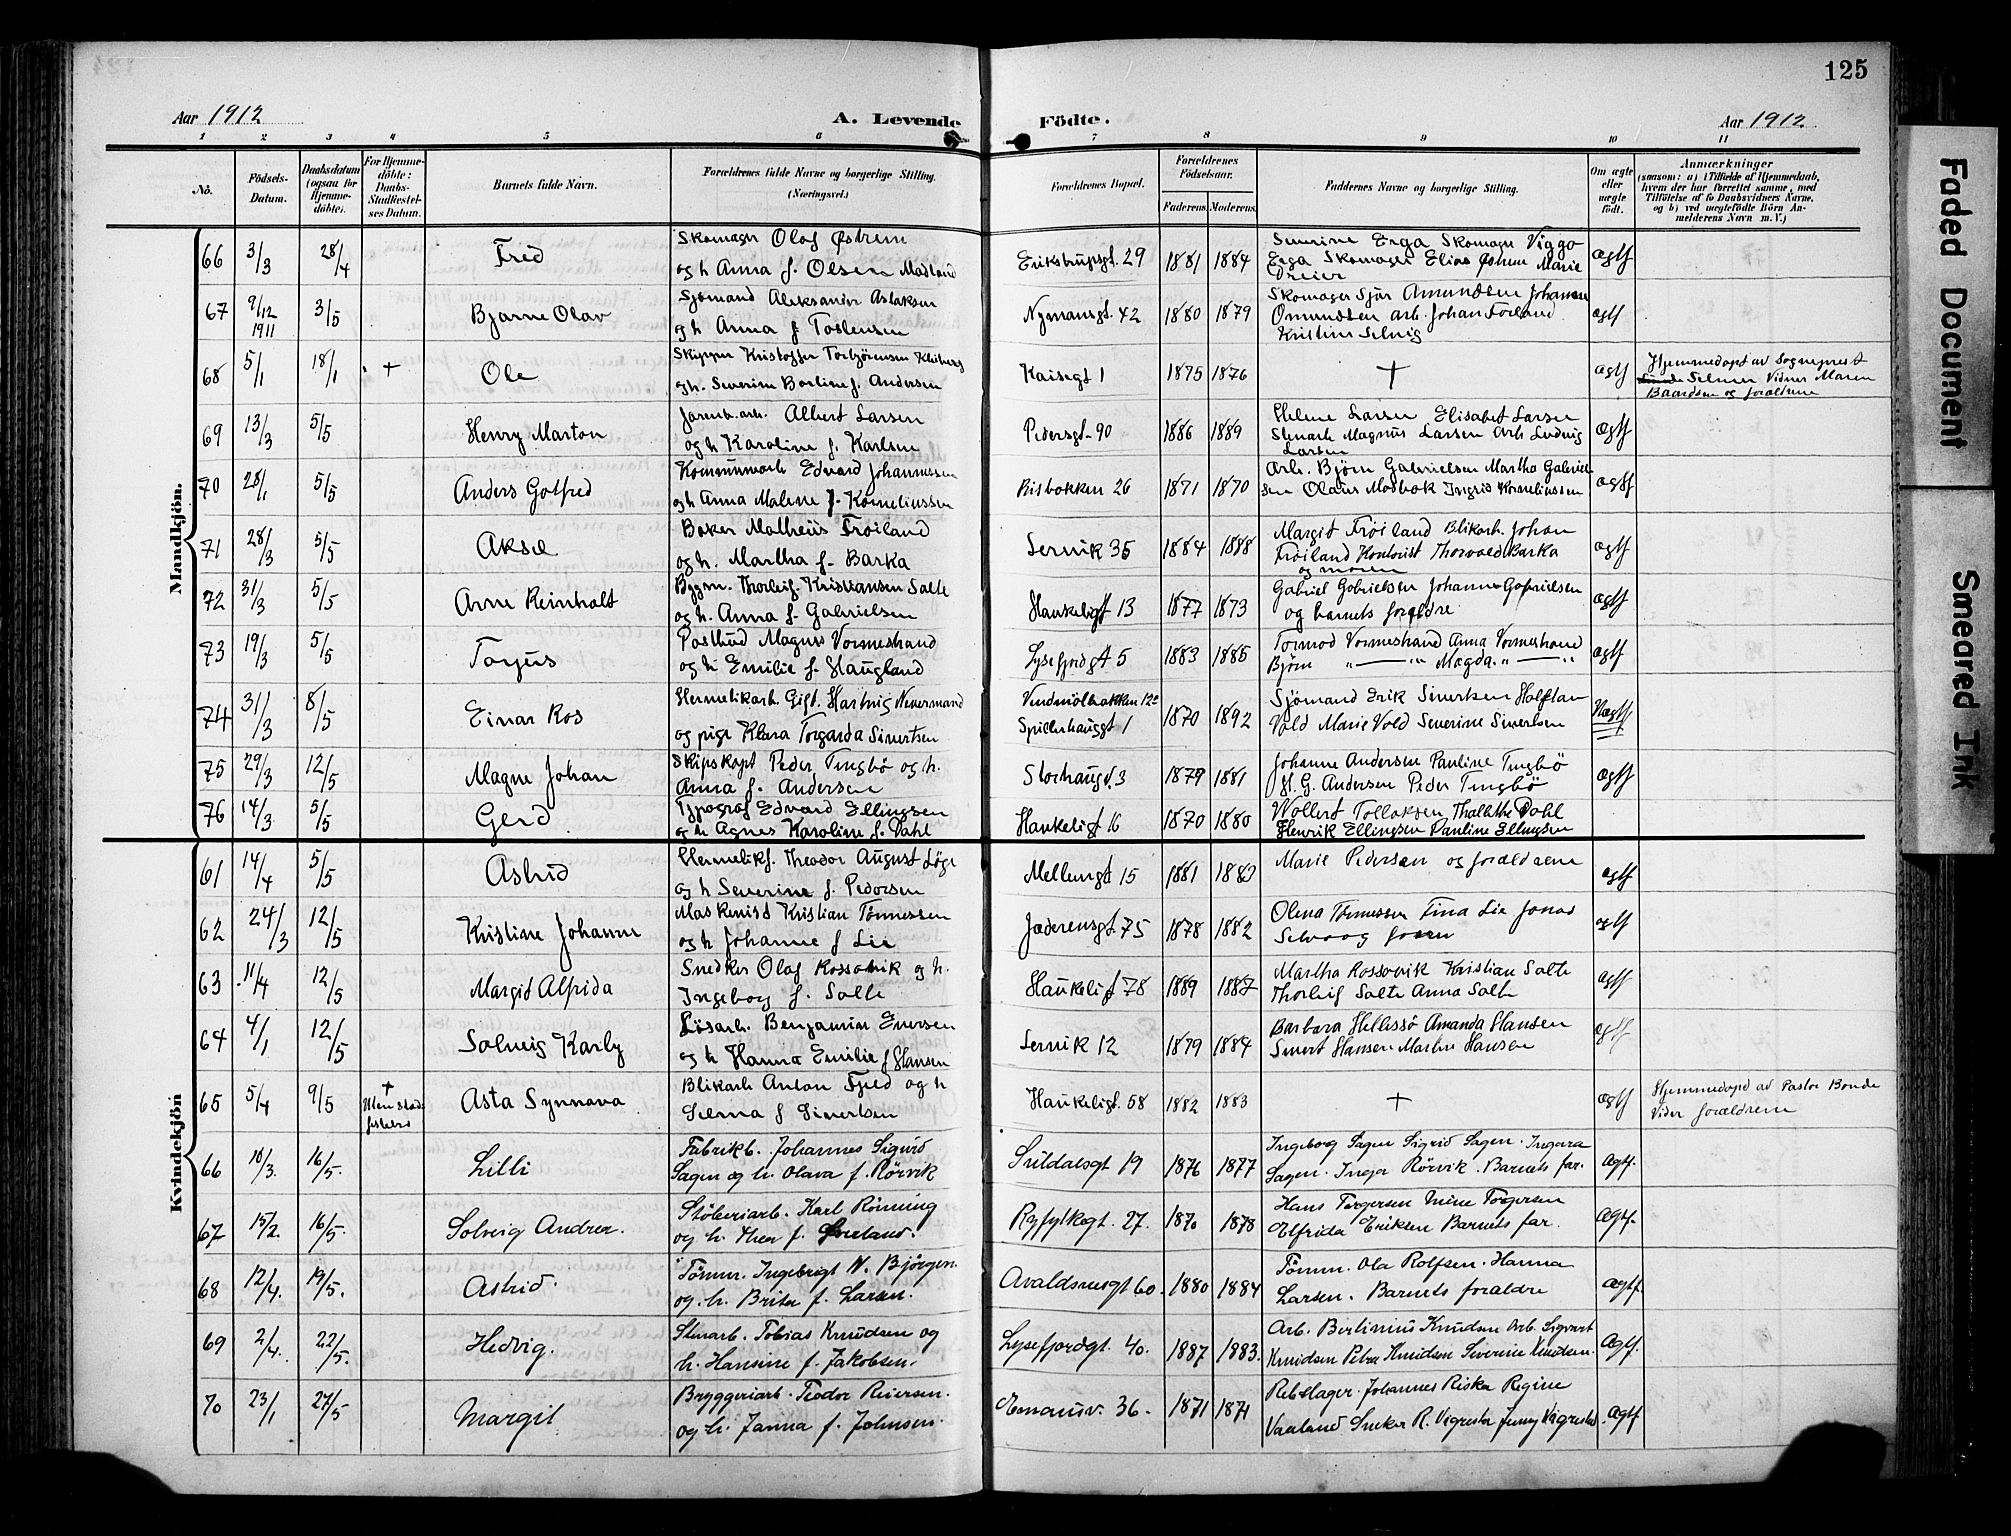 125
Aar 1912
A. Levende Födte.
Aar 1912
1 2 3 4 5 6 7 8 9 10 11
No.
Födsels-Datum.
Daabsdatum (ogsaa for Hjemme-döbte).
For Hjemme-döbte: Daabs-Stadfæstel-ses Datum.
Barnets fulde Navn.
Forældrenes fulde Navne og borgerlige Stilling. (Næringsvei.)
Forældrenes Bopæl.
Forældrenes Födselsaar.
Faderens. Moderens.
Faddernes Navne og borgerlige Stilling.
Om ægte eller uægte födt.
Anmærkninger
(saasom: a) i Tilfælde af Hjemmedaab, hvem der har forrettet samme, med Tilföielse af to Daabsvidners Navne, og b) ved uægtefödte Börn An-melderens Navn m. V.)
Mandkjön.
66 3/3 28/4 Fred
Skomager Olaf Østrem
og h Anna f. Olsen Masland
Erikstrupsgt. 29 1881 1884
Severine Erga Skomager Viggo
Erga Skomager Elias Østrem Marie
Dreier
ægtf
67 9/12 1911 3/5 Bjarne Olav
Sjømand Aleksander Aslaksen
og h Anna f Tostensen
Nymansgt. 42 1880 1879
Skomager Sjur Amundsen Johanna
Omundsen arb. Johan Førland
Kristine Selvig
ægtf
68 5/1 18/1 + Ole
Skipper Kristoffer Torbjørnsen
og h. Severine Bertine f. Andersen
Kaisegt 1 1875 1876
+
ægtf
Hjemmedøpt av Sogneprest
Selmer Vidner Maren
Baardsen og forældrene
69 13/3 5/5 Henry Marton
Jernb.arb. Albert Larsen
og h Karoline f. Karlsen
Pedersgt. 90 1886 1889
Helene Larsen Elisabet Larsen
Stenarb Magnus Larsen Arb Ludvig
Larsen
ægtf
70 28/1 5/5 Anders Gotfred
Kommunearb Edvard Johannessen
og h Anna Malene f. Korneliussen
Risbakken 26 1871 1870
Arb. Bjørn Gabrielsen Martha Gabriel
sen Olaus Modbok Ingrid Korneliussen
ægtf
71 28/3 5/5 Aksel
Baker Matheus Frøiland
og h. Martha f. Barka
Lervik 35 1884 1888
Margit Frøiland Blikarb. Johan
Frøiland Kontorist Thorvald Barka
og moren
ægtf
72 31/3 5/5 Arne Reinholt
Bygm. Thorleif Kristiansen Salte
og h. Anna f. Gabrielsen
Haukeligt 13 1877 1873
Gabriel Gabrielsen Johanne Gabrielsen
og barnets forældre
ægtf
73 19/3 5/5 Torjus
Postbud Magnus Vormestrand
og h Emilie f. Haugland
Lysefjordgt 5 1883 1885
Tormod Vormestrand Anna Vormestrand
Bjørn " — " Magda " — "
ægtf
74 31/3 8/5 Einar Ros
Hermetikarb. Gift. Hartvig Nevermand
og pige Klara Torgarda Sivertsen
Vindmöllbakken 12c
Spillerhauggt 1 1870 1892
Sjømand Erik Sivertsen Halftan
Vold Marie Vold Severine Sivertsen
Uægtf
75 29/3 12/5 Magne Johan
Skipskapt Peder Tungbø og h.
Anna f. Andersen
Storhaugv. 3 1879 1881
Johanne Andersen Pauline Tungbø
H. G. Andersen Peder Tungbø
ægtf
76 14/3 5/5 Gerd
Typograf Edvard Ellingsen
og h Agnes Karoline f. Dahl
Haukeligt 16 1870 1880
Wollert Tollaksen Thallette Dahl
Henrik Ellingsen Pauline Ellingsen
Kvindekjön
61 14/4 5/5 Astrid
Hermetikf. Theodor August Løge
og h Severine f. Pedersen
Mellemgt 15 1881 1883
Marie Pedersen og forældrene
ægtf
62 24/3 12/5 Kristine Johanne
Maskenist Kristian Tønnessen
og h Johanne f Lie
Jæderensgt. 75 1878 1882
Olena Tønnessen Tina Lie Jonas
Selvaag
ægtf
63 11/4 12/5 Margit Alfrida
Snedker Olaf Rossavik og h.
Ingeborg f. Salte
Haukeligt 78 1889 1887
Martha Rossavik Kristian Salte
Thorleif Salte Anna Salte
ægtf
64 4/1 12/5 Solveig Karly
Løsarb. Benjamin Eversen
og h Hanna Emilie f Hansen
Lervik 12 1879 1884
Barbara Hellessø Amanda Hansen
Sivert Hansen Marten Hansen
ægtf
65 5/4 9/5 + Uten stadfestelse Asta Synnøva
Blikarb Anton Fjeld og h
Selma f Sivertsen
Haukeligt. 58 1882 1883
+
ægtf
Hjemmedøpt av Pastor Bonde
Vidner forældrene
66 10/3. 16/5. Lilli
Fabrikb. Johannes Sigurd
Sagen og h. Olava f. Rörvik
Suldalsgt 19 1876 1877
Ingeborg Sagen Sigrid Sagen. Ingvara
Sagen. Inga Rörvik. Barnets far.
ægtf.
67 15/2. 16/5. Solveig Andrea.
Stöberiarb. Karl Rönning
og h. Thea f.
Ryfylkegt. 27. 1870 1878
Hans Torgersen Mine Torgersen
Elfrida Eriksen Barnets far.
ægtf.
68 12/4. 19/5. Astrid.
Tömm. Ingebrigt N. Björgen
og. h. Brita f. Larsen.
Avaldsnesgt 60. 1880 1884
Tömm. Ola Rolfsen. Hanna
Larsen. Barnets forældre
ægtf.
69 2/4. 22/5. Hedvig.
Stenarb. Tobias Knudsen og
h. Hansine f. Jakobsen.
Lysefjordgt. 40. 1887 1883.
Arb. Bertinius Knudsen Arb. Sigvart
Knudsen Petra Knudsen Severine Knudsen.
ægtf.
70 23/1 27/5 Margit
Bryggeriarb. Teodor Reiersen.
og h. Janna f. Johnsen.
Emausv. 36. 1871 1871
Rebslager. Johannes Riska Regine
Vaaland Snekker R. Vigrestad Jenny Vigrestad
ægtf
Faded Document
Smeared Ink